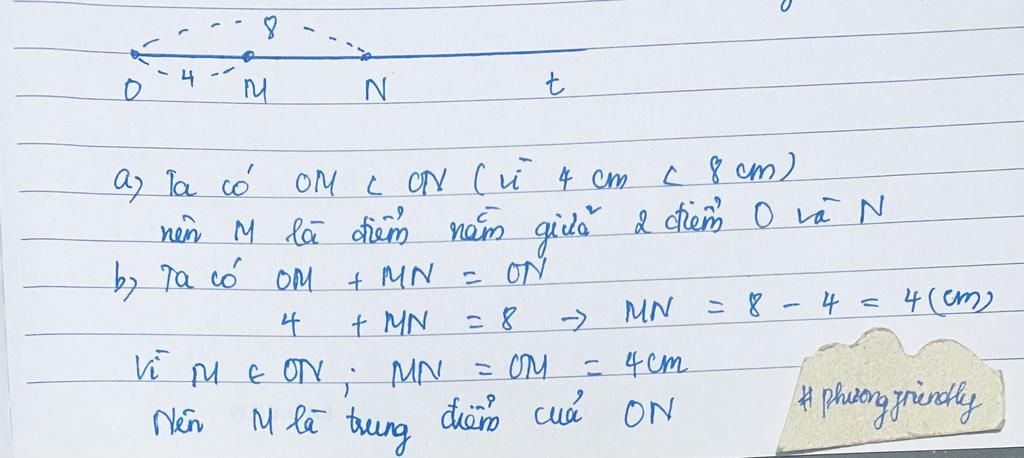 8
4
O M N t
a, Ta có OM < ON (vì 4 cm < 8 cm)
nên M là điểm nằm giữa 2 điểm O và N
b, Ta có OM + MN = ON
4 + MN = 8 → MN = 8 - 4 = 4 (cm)
Vì M ∈ ON ; MN = OM = 4cm
Nên M là trung điểm của ON
# phuongfriendly